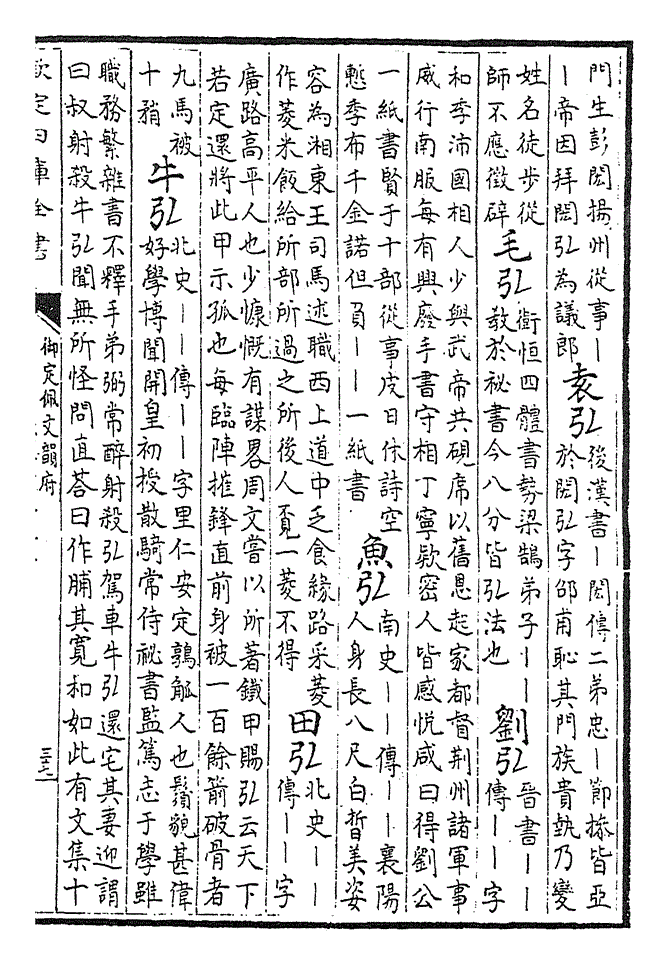 門生彭閎揚州從事丨
丨帝因拜閎弘為議郎
袁弘
後漢書丨閎傳二弟忠丨節操皆亞
於閎弘字邵甫恥其門族貴埶乃變
姓名徒步從
師不應徵辟
毛弘
衛恒四體書勢梁鵠弟子丨丨
敎於祕書今八分皆弘法也
劉弘
晉書丨丨
傳丨丨字
和季沛國相人少與武帝共硯席以舊恩起家都督荆州諸軍事
威行南服每有興廢手書守相丁寧欵密人皆感悅咸曰得劉公
一紙書賢于十部從事皮日休詩空
慙季布千金諾但負丨丨一紙書
魚弘
南史丨丨傳丨丨襄陽
人身長八尺白晳美姿
容為湘東王司馬述職西上道中乏食緣路采菱
作菱米飯給所部所過之所後人覔一菱不得
田弘
北史丨丨
傳丨丨字
廣路高平人也少慷慨有謀畧周文嘗以所著鐵甲賜弘云天下
若定還將此甲示孤也每臨陣摧鋒直前身被一百餘箭破骨者
九馬被
十矟
牛弘
北史丨丨傳丨丨字里仁安定鶉觚人也鬚貌甚偉
好學博聞開皇初授散騎常侍祕書監篤志于學雖
職務繁雜書不釋手弟弼常醉射殺弘駕車牛弘還宅其妻迎謂
曰叔射殺牛弘聞無所怪問直荅曰作脯其寛和如此有文集十
欽定四庫全書
御定佩文韻府